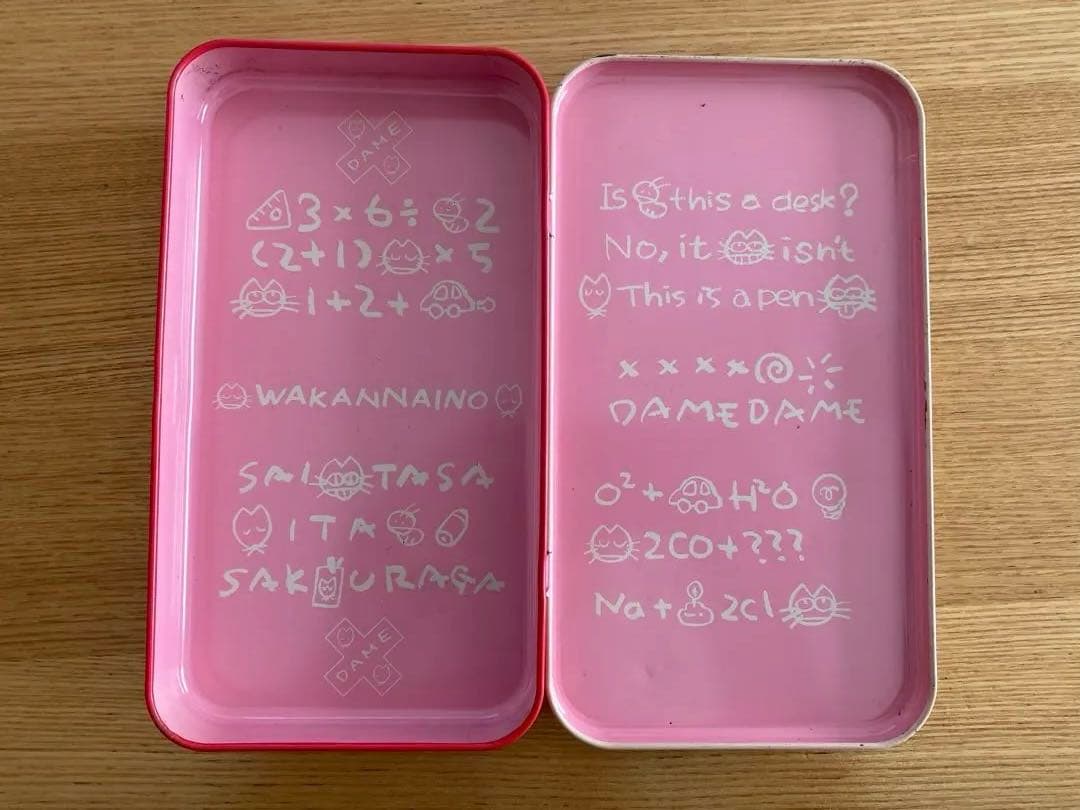 DAME
3×6÷2
(2+1)×5
1+2+
WAKANNAINO
SAITASA
ITA
SAKURAGA
DAME
Is this a desk?
No, it isn't
This is a pen
××××
DAMEDAME
O²+H²O
2CO+???
Na+2cl